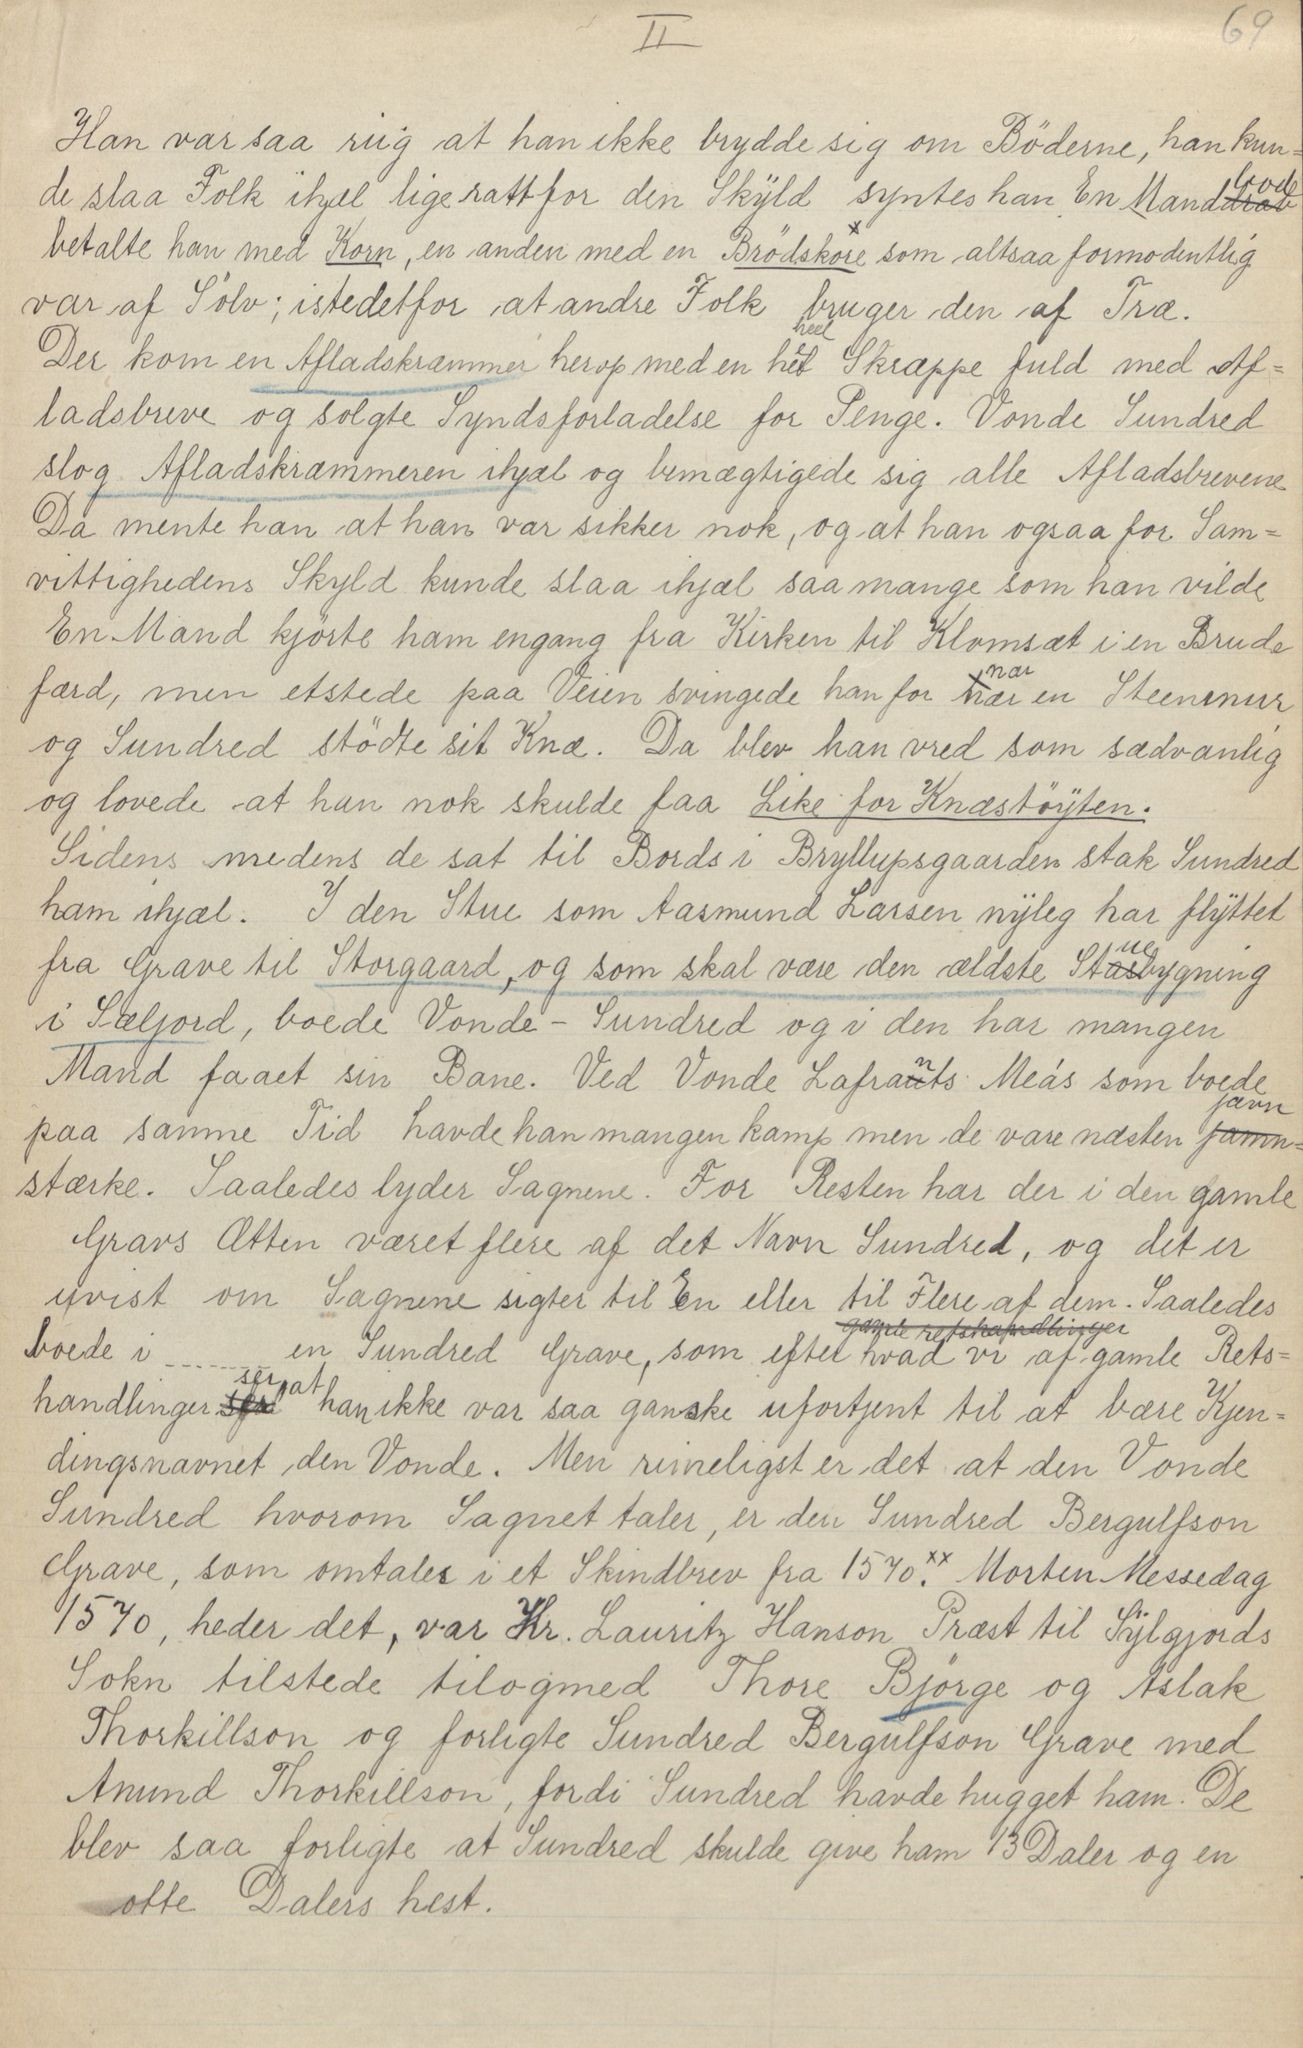 II
69
Han var saa riig at han ikke brydde sig om Böderne, han kun=
de slaa Folk ihjæl lige rattfor den Skÿld syntes han En Mand bode
betalte han med Korn, en anden med en Brödskore x som altsaa formodentlig
var af Sölv; istedetfor at andre Folk bruger den af Træ.
Der kom en Afladskræmmer herop med en heel Skræppe fuld med Af=
ladsbreve og solgte Syndsforladelse for Penge. Vonde Sundred
slog Afladskræmmeren ihjæl og bemægtigede sig alle Afladsbrevene
Da mente han at han var sikker nok, og at han ogsaa for Sam=
vittighedens Skyld kunde slaa ihjæl saa mange som han vilde
En Mand kjörte ham engang fra Kirken til Klomsæt i en Brude
færd, men etstede paa Veien svingede han for nær en Steenmur
og Sundred stödte sit Knæ. Da blev han vred som sædvanlig
og lovede at han nok skulde faa Like for Knæstöÿten.
Sidens medens de sat til Bords i Bryllupsgaarden stak Sundred
ham ihjæl. I den Stue som Aasmund Larsen nÿleg har flÿttet
fra Grave til Storgaard, og som skal være den ældste Stuebygning
i Sæljord, boede Vonde - Sundred og i den har mangen
Mand faaet sin Bane. Ved Vonde Lafrants Meás som boede
paa samme Tid havde han mangen kamp men de vare næsten javn
stærke. Saaledes lyder Sagnene. For Resten har der i den gamle
Gravs Ætten været flere af det Navn Sundred, og det er
uvist om Sagnene sigter til En eller til Flere af dem. Saaledes
gamle retshandlinger
boede i ........ en Sundred Grave, som efter hvad vi af gamle Rets=
handlinger ser at han ikke var saa ganske ufortjent til at bære Kjen=
dingsnavnet den Vonde. Men rimeligst er det at den Vonde
Sundred hvorom Sagnet taler, er den Sundred Bergulfson
Grave, som omtales i et Skindbrev fra 1570.xx Morten Messedag
1570, heder det, var Hr. Lauritz Hanson Præst til Sÿlgjords
Sokn tilstede tilogmed Thore Björge og Aslak
Thorkillson og forligte Sundred Bergulfson Grave med
Anund Thorkillson, fordi Sundred havde hugget ham. De
blev saa forligte at Sundred skulde give ham 13 Daler og en
otte Dalers hest.